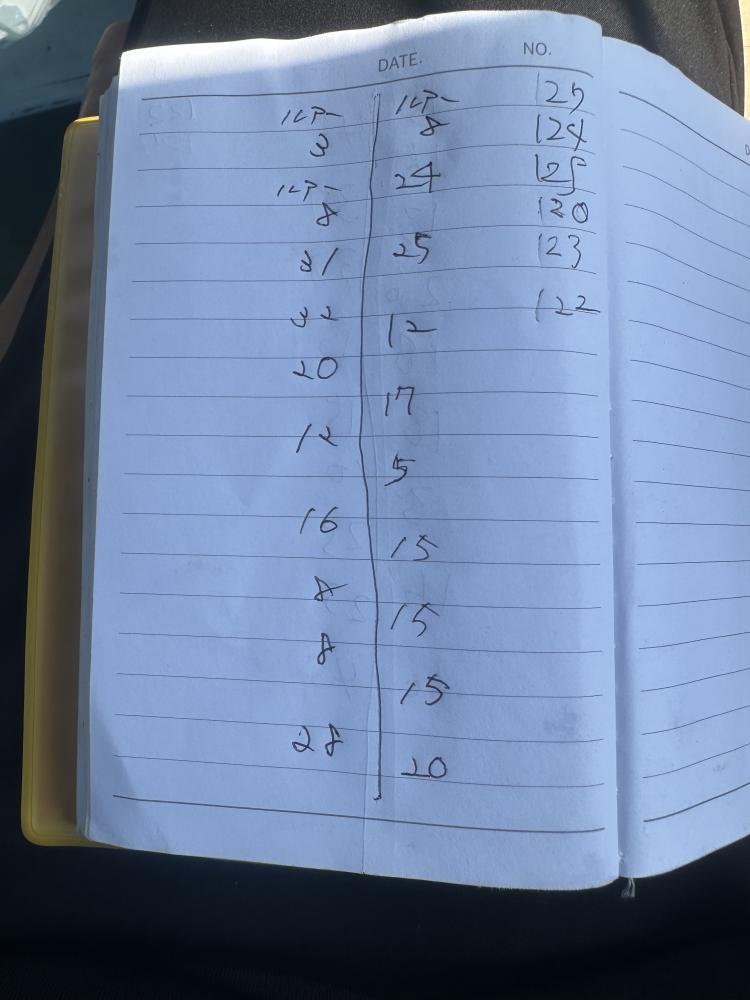 DATE.
NO.
3
8
31
32
20
12
16
8
8
28
8
24
25
12
17
5
15
15
15
20
125
124
125
120
123
122